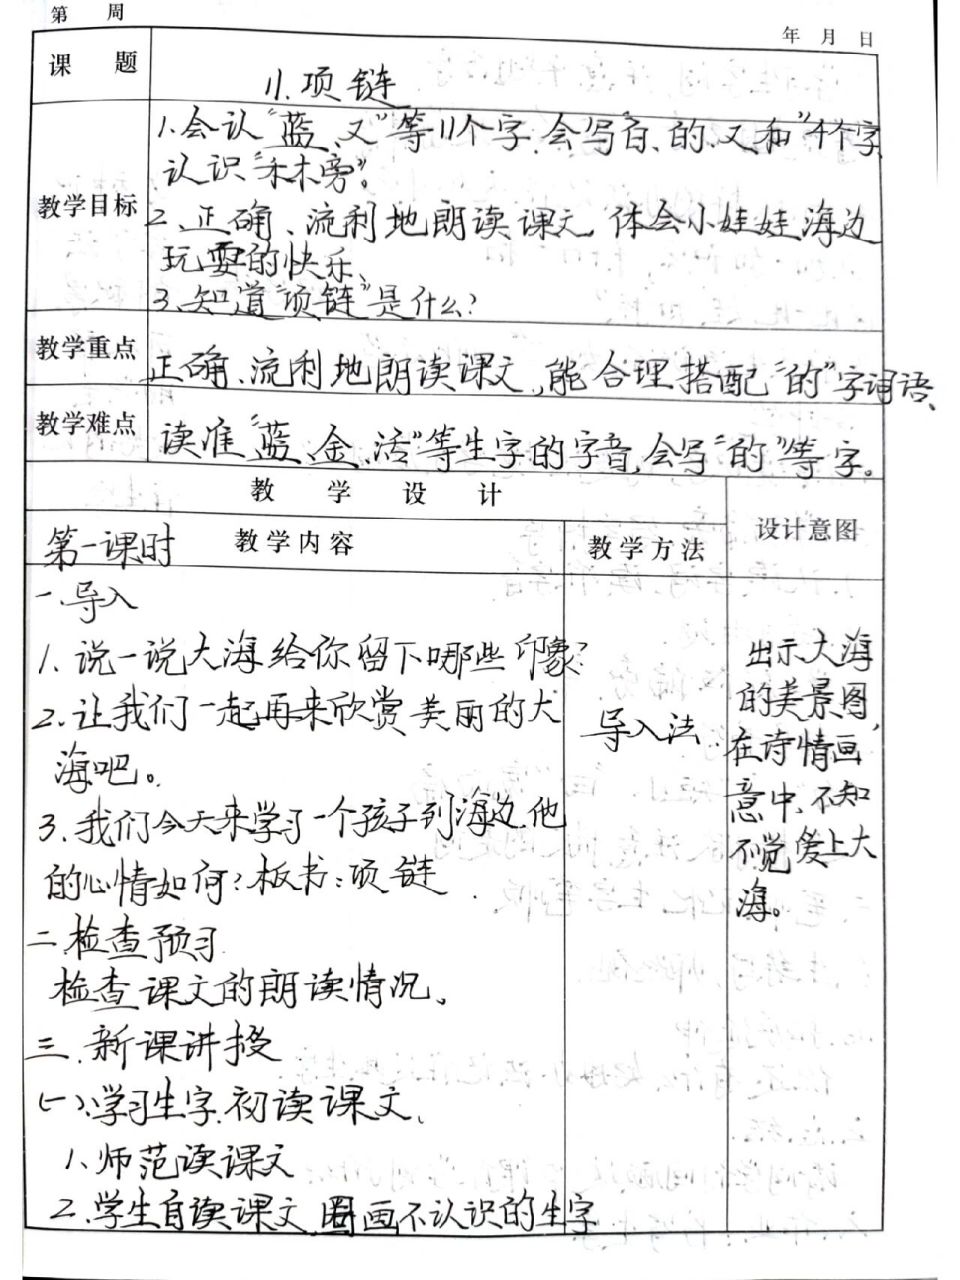 第 周
年 月 日
课 题
11.项链
教学目标
1.会认“蓝、又”等11个字.会写“白、的、又、和”4个字
认识“禾木旁”。
2、正确、流利地朗读课文,体会小娃娃海边
玩耍的快乐、
3、知道“项链”是什么?
教学重点
正确、流利地朗读课文,能合理搭配“的”字词语、
教学难点
读准“蓝、金、活”等生字的字音,会写“的”等字。
教 学 设 计
设计意图
第一课时 教学内容
教学方法
一.导入
1.说一说大海给你留下哪些印象?
2.让我们一起再来欣赏美丽的大
海吧。
3.我们今天来学习一个孩子到海边他
的心情如何?板书:项链.
二.检查预习
检查课文的朗读情况。
三.新课讲授
(一)、学习生字.初读课文、
1、师范读课文
2.学生自读课文,圈画不认识的生字
导入法
出示大海
的美景图,
在诗情画
意中,不知
不觉爱上大
海。